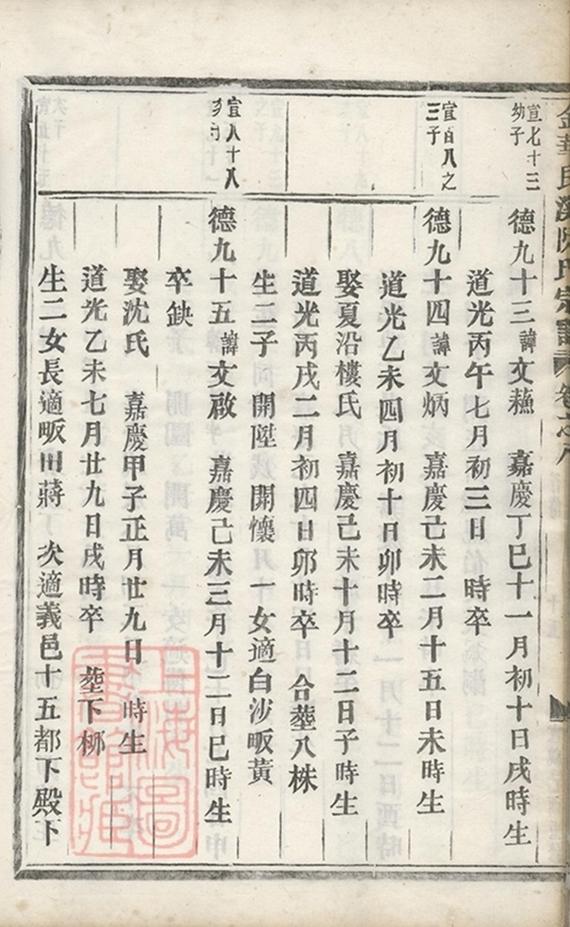 金華氏宗譜 卷之八
宣七十三
幼子
德九十三諱文蘓 嘉慶丁巳十一月初十日戌時生
道光丙午七月初三日 時卒
宣百八之
三子
德九十四諱文炳 嘉慶己未二月十五日未時生
道光乙未四月初十日卯時卒
娶夏沿樓氏 嘉慶己未十月十二日子時生
道光丙戌二月初四日卯時卒 合塟八株
生二子 開陞 開懷 一女適白沙畈黃
宣八十八
子
德九十五諱文啟 嘉慶己未三月十二日巳時生
卒缺
娶沈氏 嘉慶甲子正月廿九日 時生
道光乙未七月廿九日戌時卒 塟下
生二女長適畈田蔣 次適義邑十五都下殿下
上海圖
書館藏